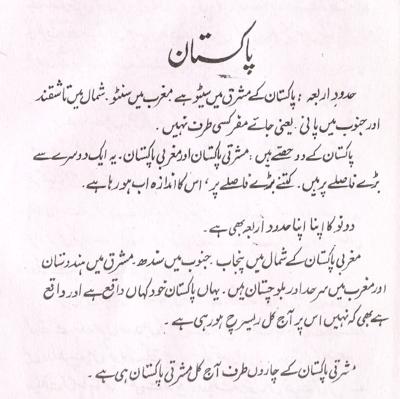 پاکستان
حدود اربعہ : پاکستان کے مشرق میں سیٹو ہے مغرب میں سنٹو۔ شمال میں تاشقند
اور جنوب میں پانی۔ یعنی جائے مفر کسی طرف نہیں۔
پاکستان کے دو حصے ہیں : مشرقی پاکستان اور مغربی پاکستان۔ یہ ایک دوسرے سے
بڑے فاصلے پر ہیں۔ کتنے بڑے فاصلے پر، اس کا اندازہ اب ہو رہا ہے۔
دونو کا اپنا اپنا حدود اربعہ بھی ہے۔
مغربی پاکستان کے شمال میں پنجاب۔ جنوب میں سندھ۔ مشرق میں ہندوستان
اور مغرب میں سرحد اور بلوچستان ہیں۔ یہاں پاکستان خود کہاں واقع ہے اور واقع
ہے بھی کہ نہیں اس پر آج کل ریسرچ ہو رہی ہے۔
مشرقی پاکستان کے چاروں طرف آج کل مشرقی پاکستان ہی ہے۔